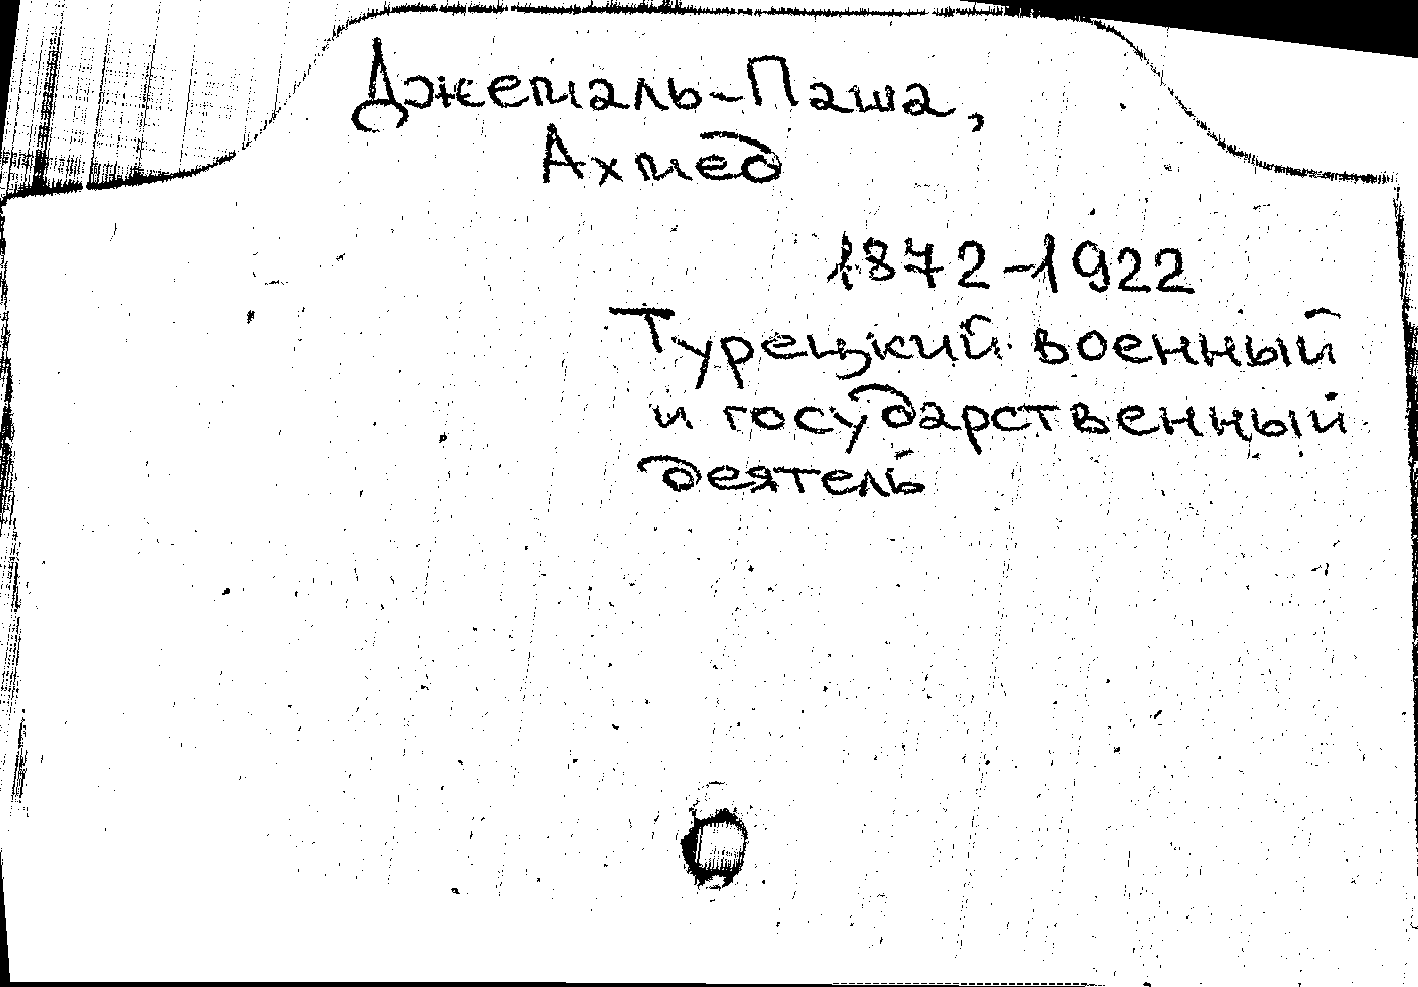 Джемаль-Паша,
Ахмед
1872-1922
Турецкий военный
и государственный
деятель